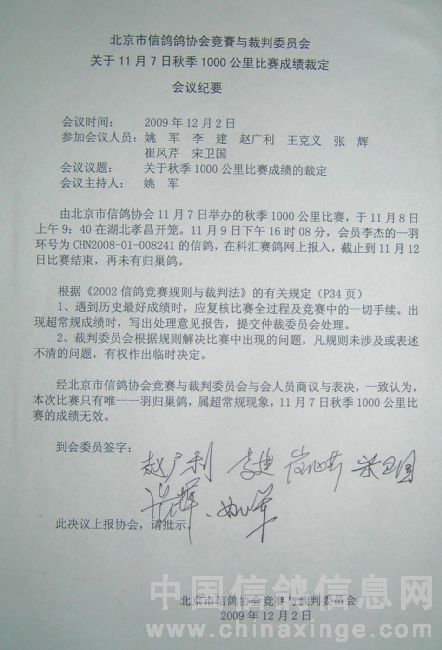 北京市信鸽鸽协会竞赛与裁判委员会
关于11月7日秋季1000公里比赛成绩裁定
会议纪要
会议时间： 2009年12月2日
参加会议人员：姚 军 李 建 赵广利 王克义 张 辉
崔凤芹 宋卫国
会议议题：关于秋季1000公里比赛成绩的裁定
会议主持人：姚 军
由北京市信鸽协会11月7日举办的秋季1000公里比赛，于11月8日
上午9：40在湖北孝昌开笼。11月9日下午16时08分，会员李杰的一羽
环号为CHN2008-01-008241的信鸽，在科汇赛鸽网上报入，截止到11月12
日比赛结束，再未有归巢鸽。
根据《2002信鸽竞赛规则与裁判法》的有关规定（P34页）
1、遇到历史最好成绩时，应复核比赛全过程及竞赛中的一切手续。出
现超常规成绩时，写出处理意见报告，提交仲裁委员会处理。
2、裁判委员会根据规则解决比赛中出现的问题，凡规则未涉及或表述
不清的问题，有权作出临时决定。
经北京市信鸽协会竞赛与裁判委员会与会人员商议与表决，一致认为，
本次比赛只有唯一一羽归巢鸽，属超常规现象，11月7日秋季1000公里比
赛的成绩无效。
到会委员签字：
赵广利 李建 崔凤芹 宋卫国
张辉 姚军
此决议上报协会，请批示。
北京市信鸽协会竞赛与裁判委员会
2009年12月2日
中国信鸽信息网
www.chinaxinge.com